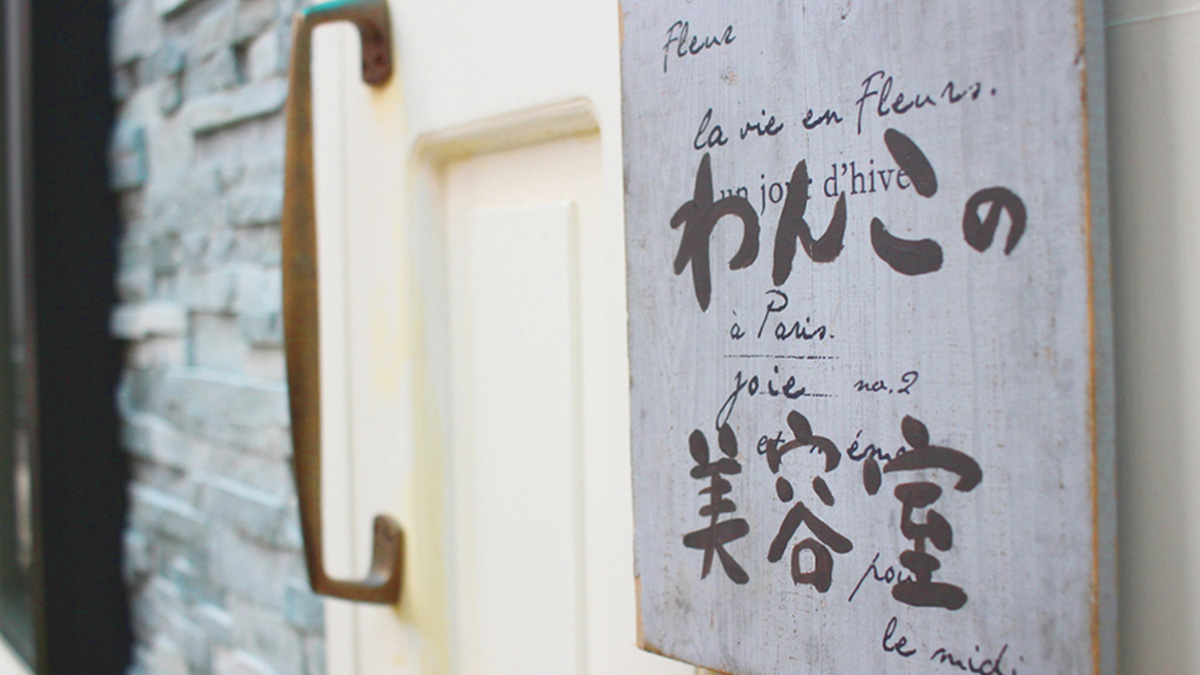 Fleur
la vie en Fleurs.
un jour d'hive
わんこの
à Paris.
joie no.2
et
美容室
pou
le midi